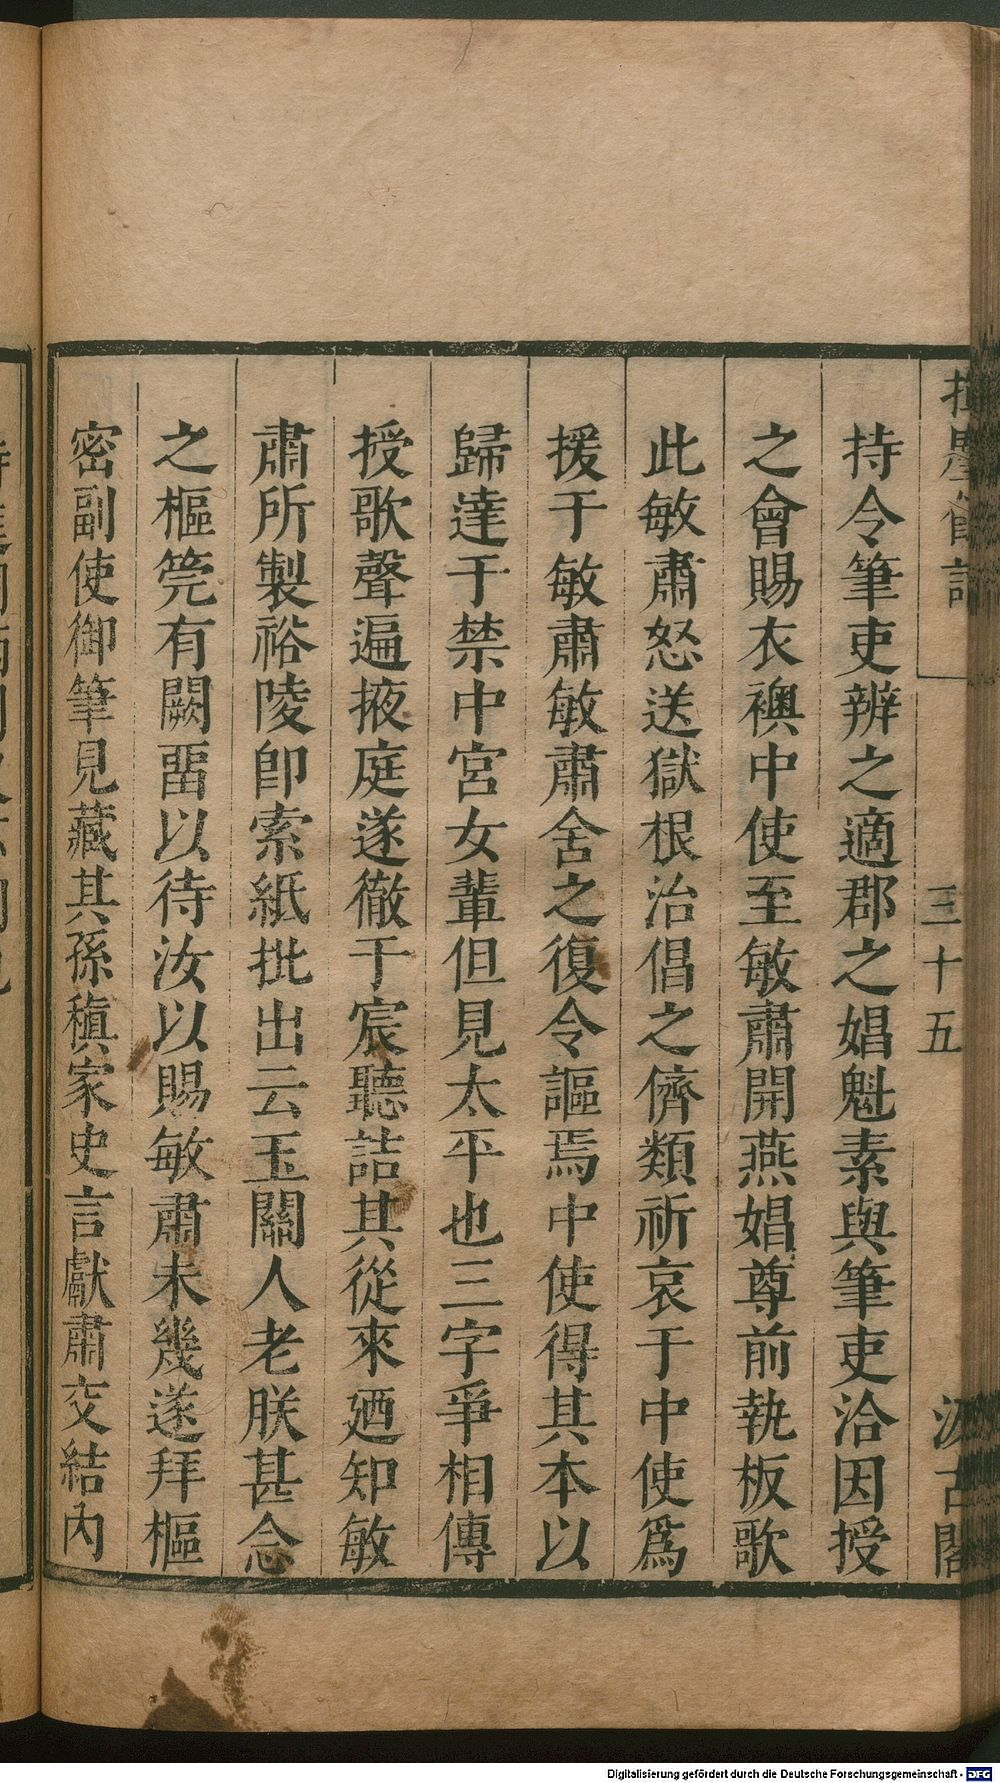 持令筆吏辨之適郡之娼魁素與筆吏洽因授
之會賜衣襖中使至敏肅開燕娼尊前執板歌
此敏肅怒送獄根治倡之儕類祈哀于中使爲
援于敏肅敏肅舍之復令謳焉中使得其本以
歸達于禁中宮女輩但見太平也三字爭相傳
授歌聲遍掖庭遂徹于宸聽詰其從來廼知敏
肅所製裕陵卽索紙批出云玉關人老朕甚念
之樞筦有闕畱以待汝以賜敏肅未幾遂拜樞
密副使御筆見藏其孫稹家史言獻肅交結內
三十五
汲古閣
Digitalisierung gefördert durch die Deutsche Forschungsgemeinschaft - DFG